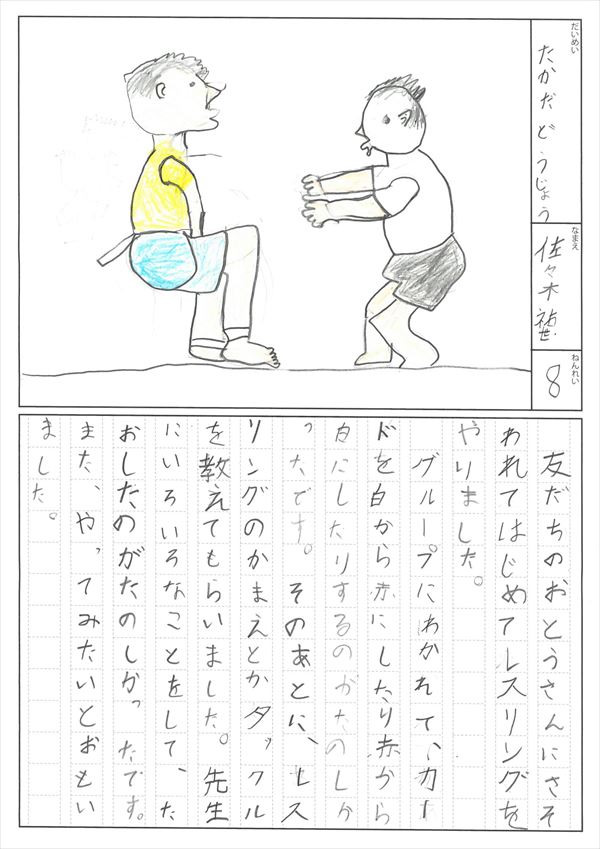 だいめい
たかだどうじょう
なまえ
佐々木
ねんれい
8
友だちのおとうさんにさそ
われてはじめてレスリングを
やりました。
グループにわかれて、カー
ドを白から赤にしたり赤から
白にしたりするのがたのしか
ったです。そのあとに、レス
リングのかまえとかタックル
を教えてもらいました。先生
にいろいろなことをして、た
おしたのがたのしかったです。
また、やってみたいとおもい
ました。